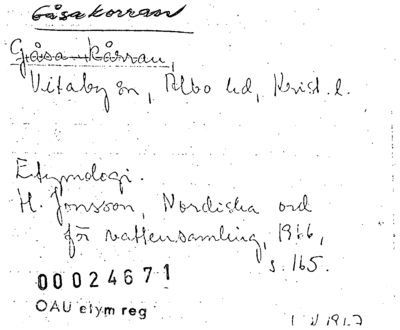 Gåsakorran
Gåsa-kårran,
Vitaby sn, Albo hd, Krist. l.
Etymologi.
H. Jonsson, Nordiska ord
för vattensamling, 1966,
s. 165.
00024671
OAU etym reg
1967